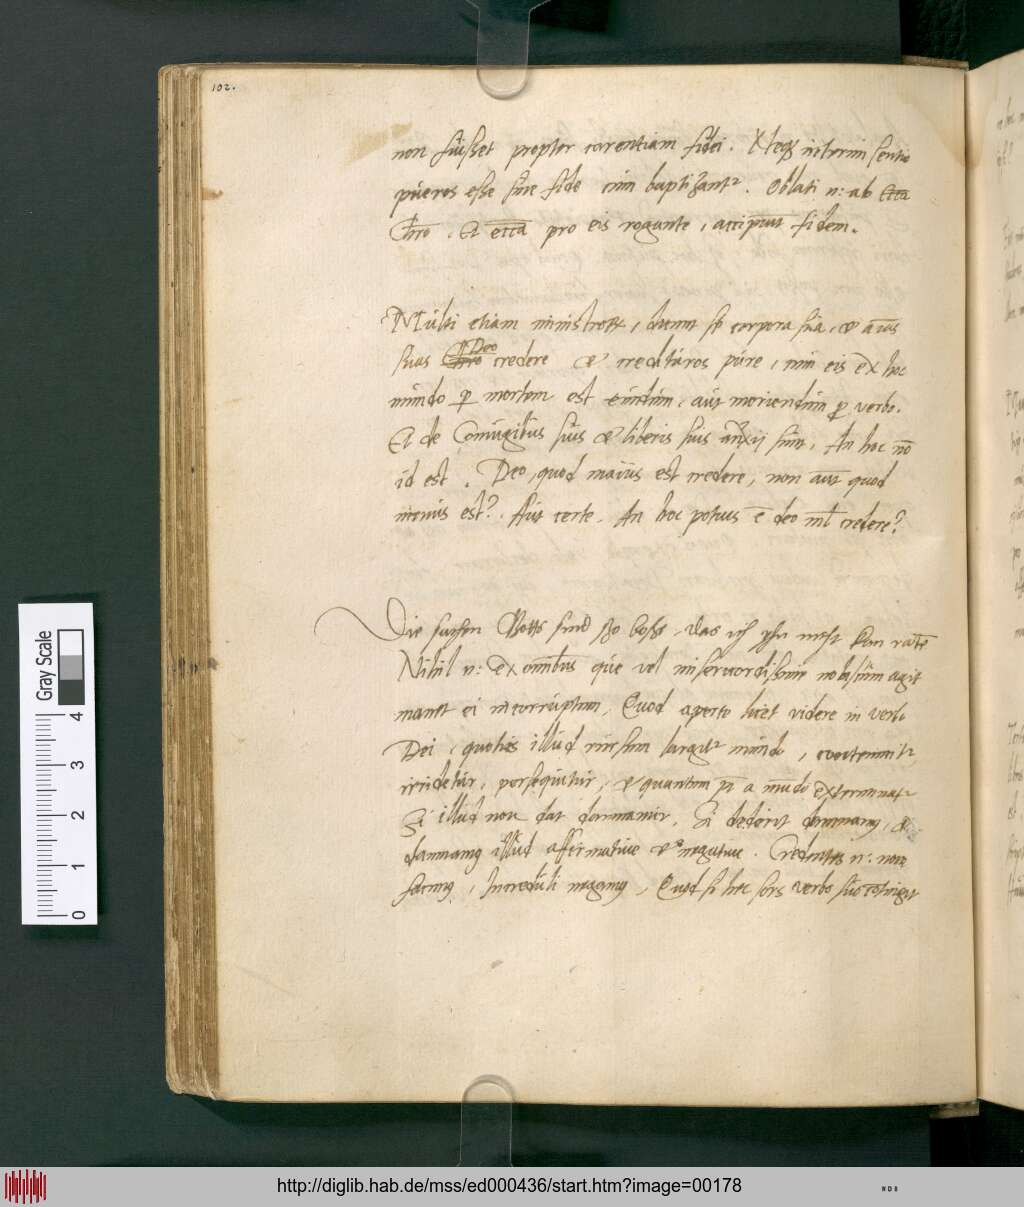 102.
non fuisset propter carentiam fidei. Neq3 interim sentio
pueros esse sine fide cum baptizant^r. Oblati n: ab
Chro. Et ecca pro eis rogante, accipiunt fidem.
Multi etiam ministrorum, dicunt se corpora sua, et aīas
suas Deo credere et credituros pure, cum eis ex hoc
mundo p mortem est eundum, aut moriendum p verbo.
Et de Coniugibus suis et liberis suis anxij sunt, An hoc nō
id est. Deo, quod maius est credere, non autē quod
minus est? Aut certe. An hoc potius ē deo nihil credere?
Die sachen Gotts sind so boss, das ich yhr nicht kan raten
Nihil n: ex omnibus que vel misericordissime nobiscum agit
manet ei incorruptum, Quod aperte licet videre in verbo
Dei, quoties illud rursum largit^r mundo, contemnit^r,
irridetur, persequitur, et quantum pt a mundo exterminat^r
Si illud non dat damnamur, Si dederit damnamus, et
damnamus illud affirmatiue et negatiue. Credentes n: non
facimus, Increduli negamus, Quod si hec sors verbo suo cōtingit
Gray Scale
0 1 2 3 4
http://diglib.hab.de/mss/ed000436/start.htm?image=00178